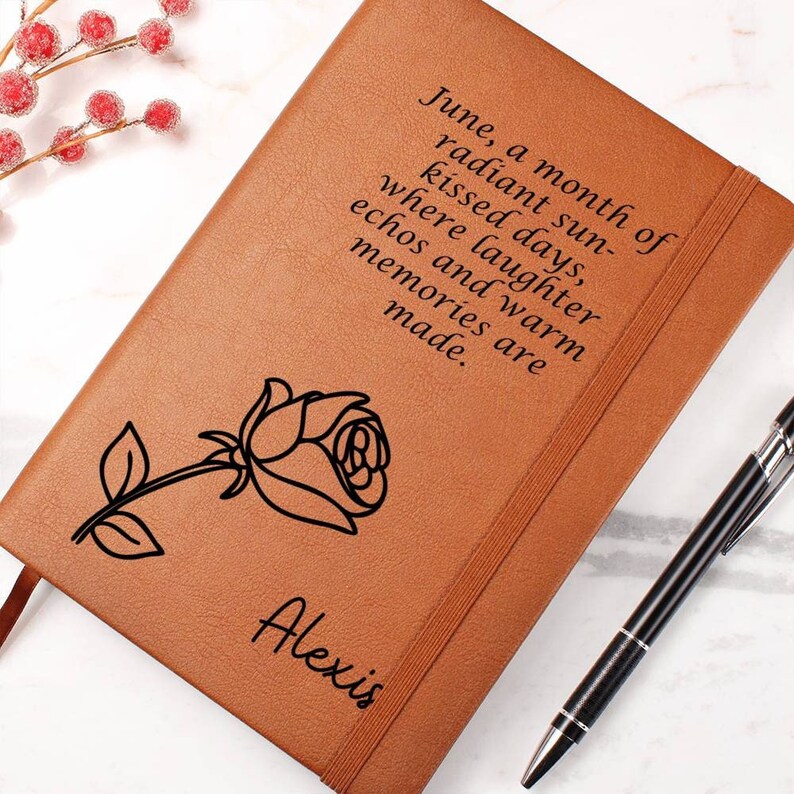 June, a month of
radiant sun-
kissed days,
where laughter
echos and warm
memories are
made.
Alexis